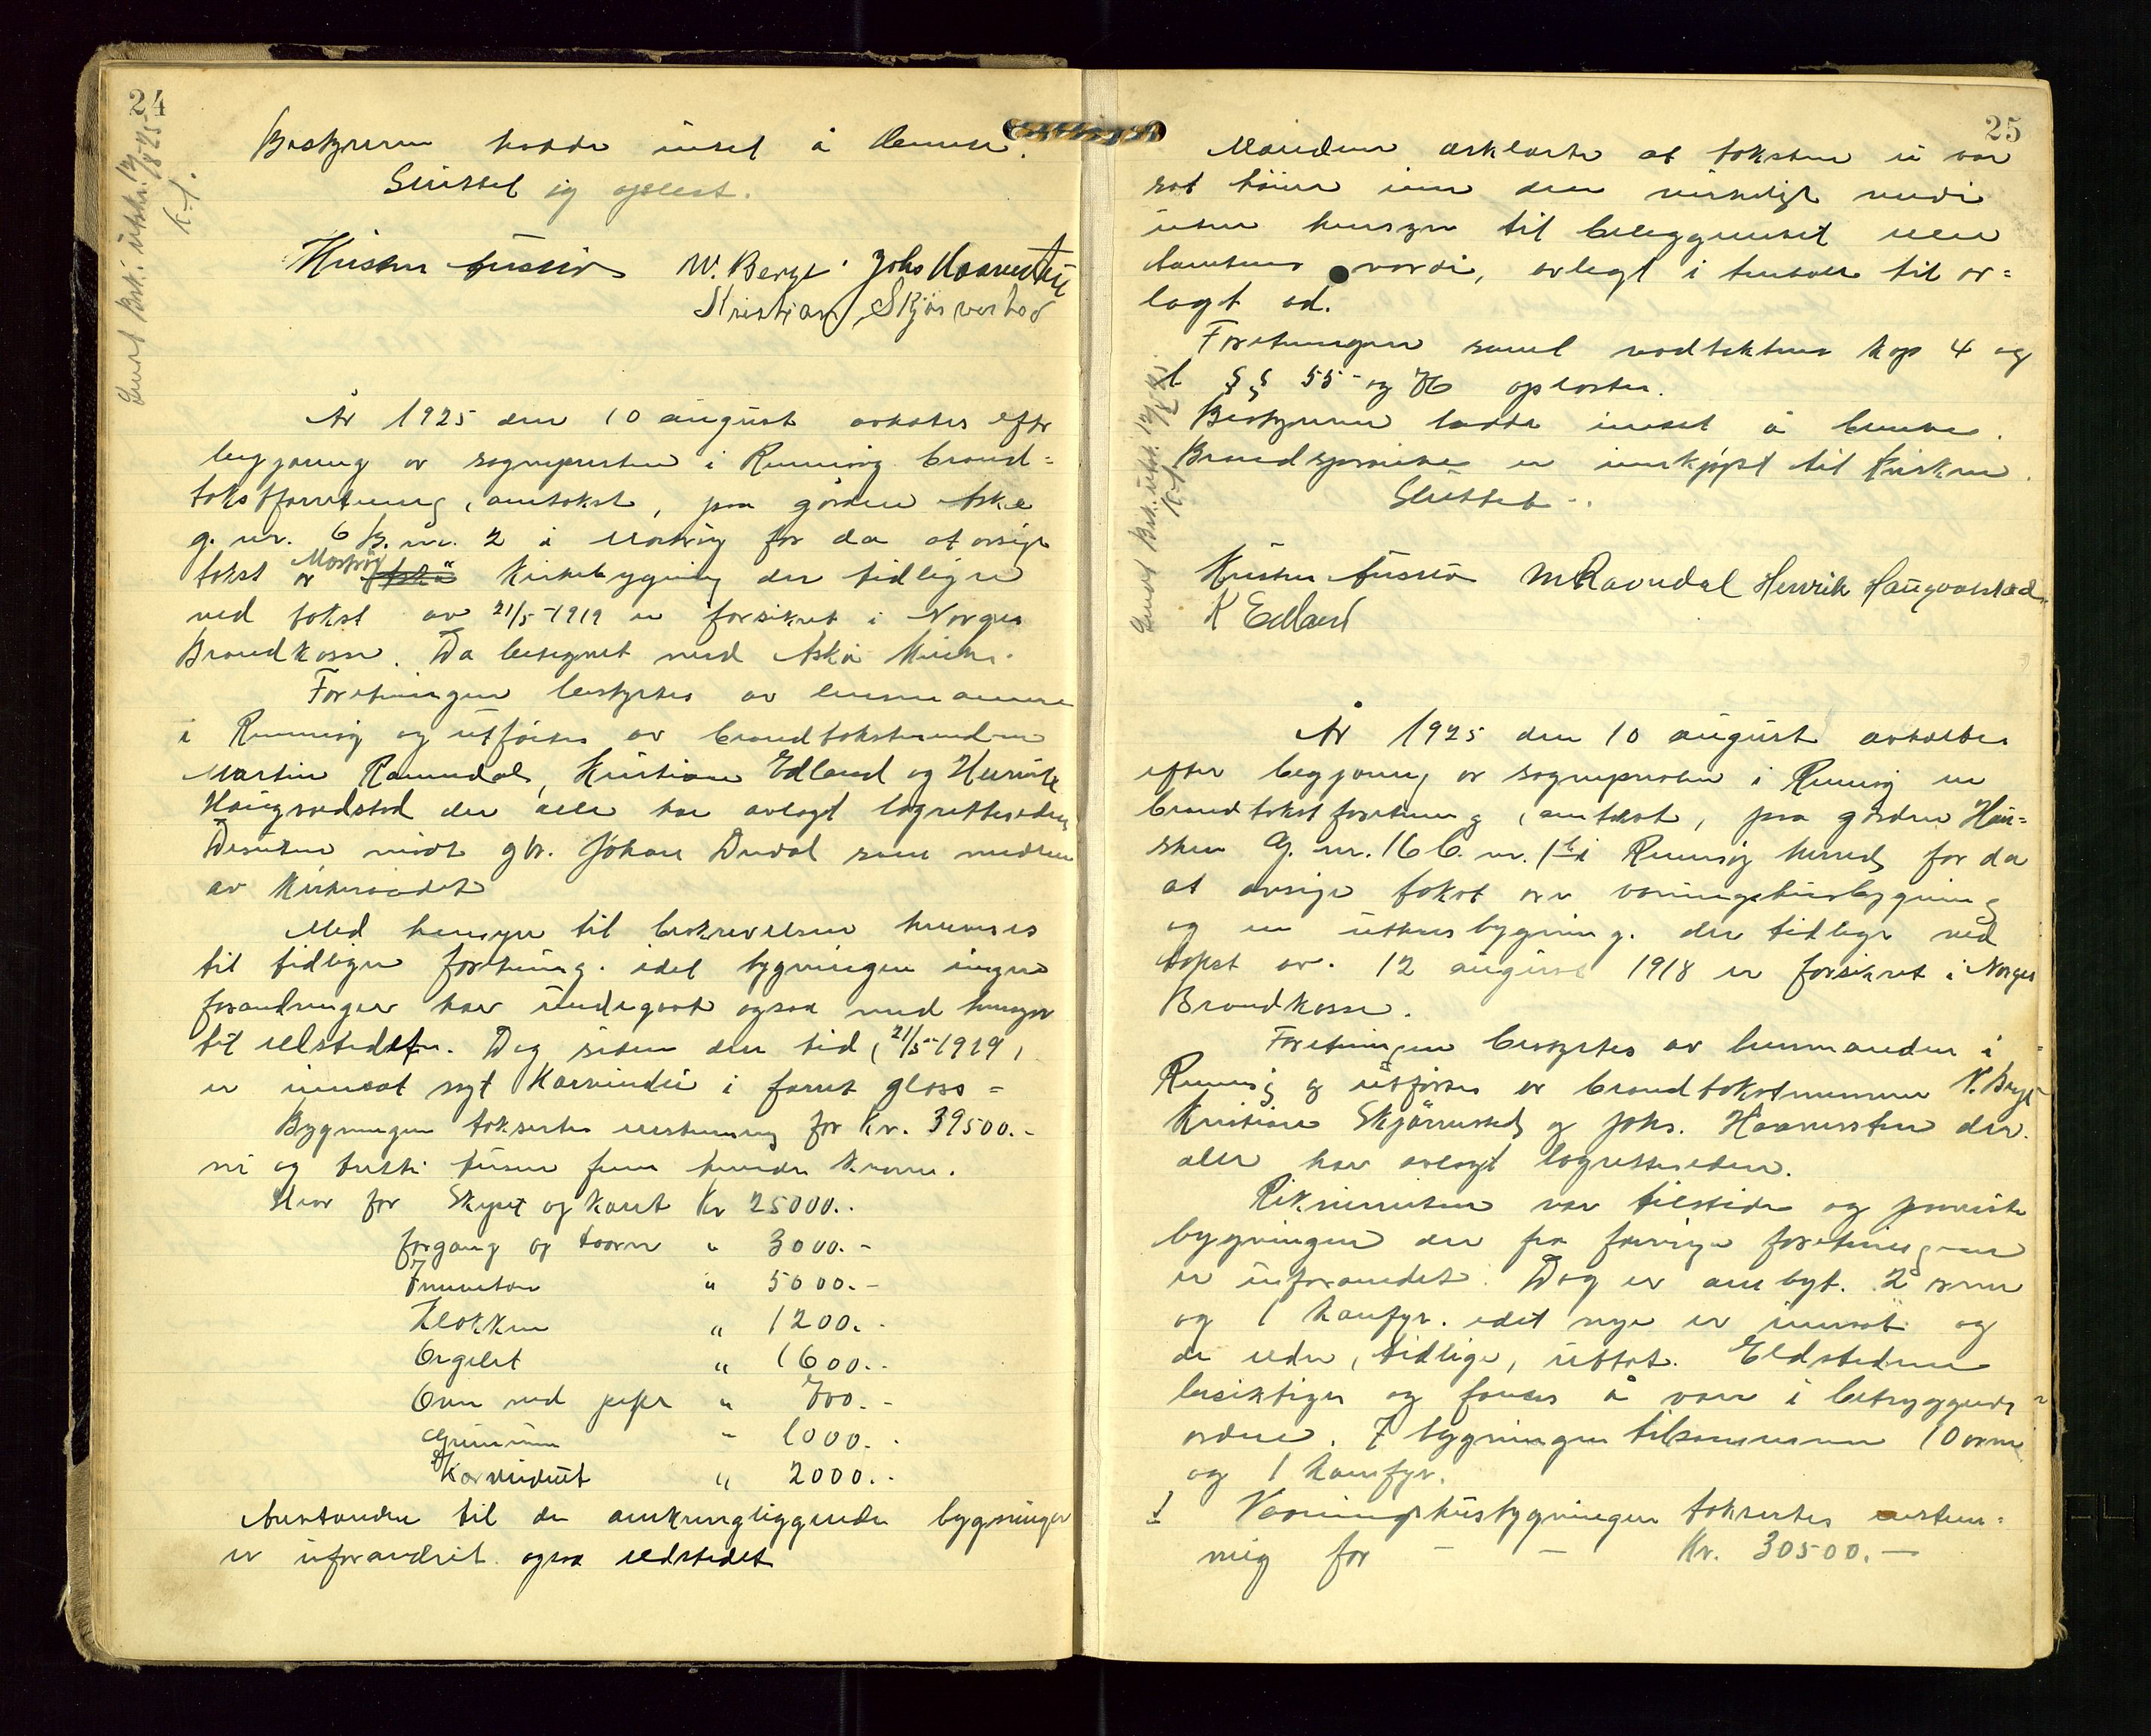 24
Bestyreren hadde intet å bemerke.
Sluttet og oplest.
W. Berge Johs Haavarstein
Kristian Skjørvestad
År 1925 den 10 august avholdtes efter
begjæring av sognepresten i Rennesøy brand=
takstforretning, omtakst, paa gården Askø
g. nr. 6 b. nr. 2 i Mosterøy for da at avsige
takst av Mosterøy Askø Kirkebygning der tidligere
ved takst av 21/5-1919 er forsikret i Norges
Brandkasse. Da betegnet med Askø Kirke.
Forretningen bestyrtes av lensmannen
i Rennesøy og utførtes av brandtakstmendene
Martin Ravndal, Kristian Edland og Henrik
Haugvaldstad der alle har avlagt lagrettseden
Desuten møtte gbr. Johan Dudal som medlem
av Kirkeraadet
Med hensyn til beskrivelsen henvises
til tidligere forretning. idet bygningen ingen
forandringer har undergaat ogsaa med hensyn
til ildstedet. Dog siden den tid (21/5-1919)
er innsat nyt Korvindu i farvet glass=
Bygningen takseertes enstemmig for Kr. 39500.-
ni og tretti tusen fem hundre kroner.
Hvor for Skipet og koret Kr 25000.-
forgang og taarn " 3000.-
Inventar " 5000.-
Klokken " 1200.-
Orgelet " 1600.-
Ovn med pipe " 700.-
1000.-
Korvinduet " 2000.-
Avstanden til de omkringliggende bygninger
er uforandret ogsaa ildstedet
25
Mændene erklærte at taksten ei var
sat høiere enn den virkelige verdi
uten hensyn til beliggenhet eller
tomtens værdi, avlagt i henhold til av=
lagt ed.
Forretningen samt vedtektene kap 4 og
§§ 55 og 76 oplæstes.
Bestyreren hadde intet å bemerke.
Brandsprøite er innkjøpt til Kirken.
Sluttet.
M Ravndal Henrik Haugvaldstad
K Edland
År 1925 den 10 august avholdtes
efter begjæring av sognepresten i Rennesøy en
brandtakstforretning, omtakst, paa gården Hau=
sken G. nr. 16 b. nr. 1 i Rennesøy herred for da
at avsige takst over vaaningshusbygning
og en uthusbygning. der tidligere ved
takst av. 12 august 1918 er forsikret i Norges
Brandkasse.
Forretningen bestyrtes av lensmanden i
Rennesøy og utførtes av brandtakstmennene V. Berge
Kristian Skjørvestad og Johs. Haavarstein der
alle har avlagt lagrettseden.
Rekvirenten var tilstede og paaviste
bygningen der fra forrige forretningen
er uforandret. Dog er ombyt. 2 ovner
og 1 komfyr. idet nye er innsat og
de eldre, tidligere, uttat. Eldstedene
besiktiget og fantes å være i betryggende
orden. I bygningen tilsammen 10 ovner
og 1 komfyr.
1 Vaaningshusbygningen takseertes enstem=
mig for - - Kr. 30500.-